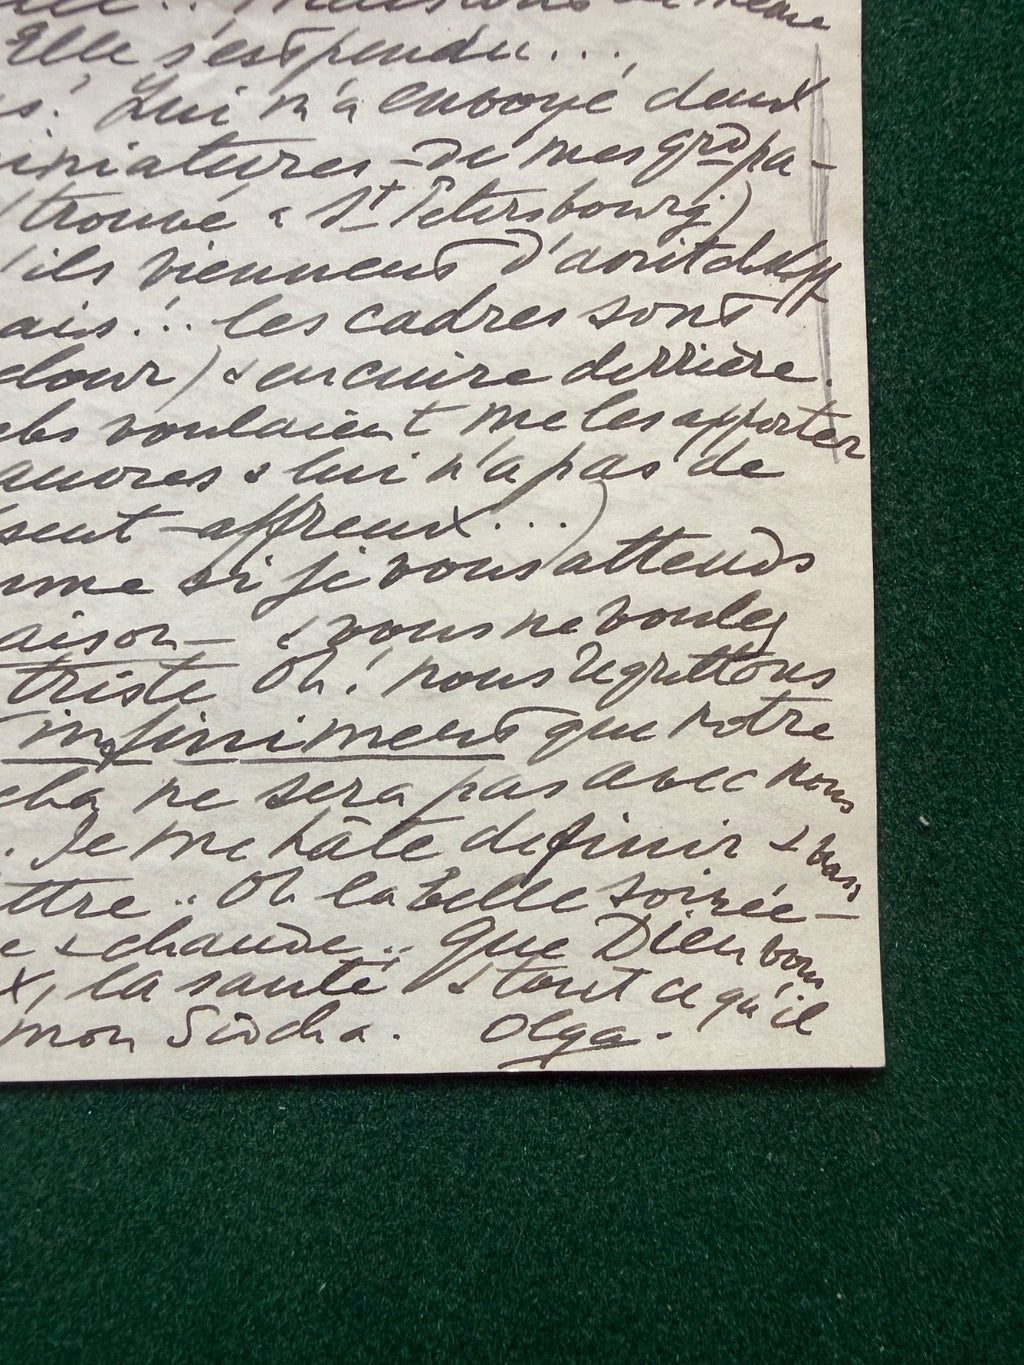 même
Elle s'est pendu...
s! Lui m'a envoyé deux
iniatures - de mes grd pa-
(trouvé a St Petersbourg)
'ils viennent d'
ais!.. les cadres sont
lour) & en cuire derrière.
voulaient me les apporter
& lui n'a pas de
sent - affreux...)
me si je vous attends
aison - & vous ne voulez
triste Oh! nous regrettons
infiniment que notre
cha ne sera pas avec nous
. Je me hâte de finir &
ttre .. Oh la belle soirée -
e & chaude.. Que Dieu vous
x, la santé & tout ce qu'il
mon Sacha. Olga.